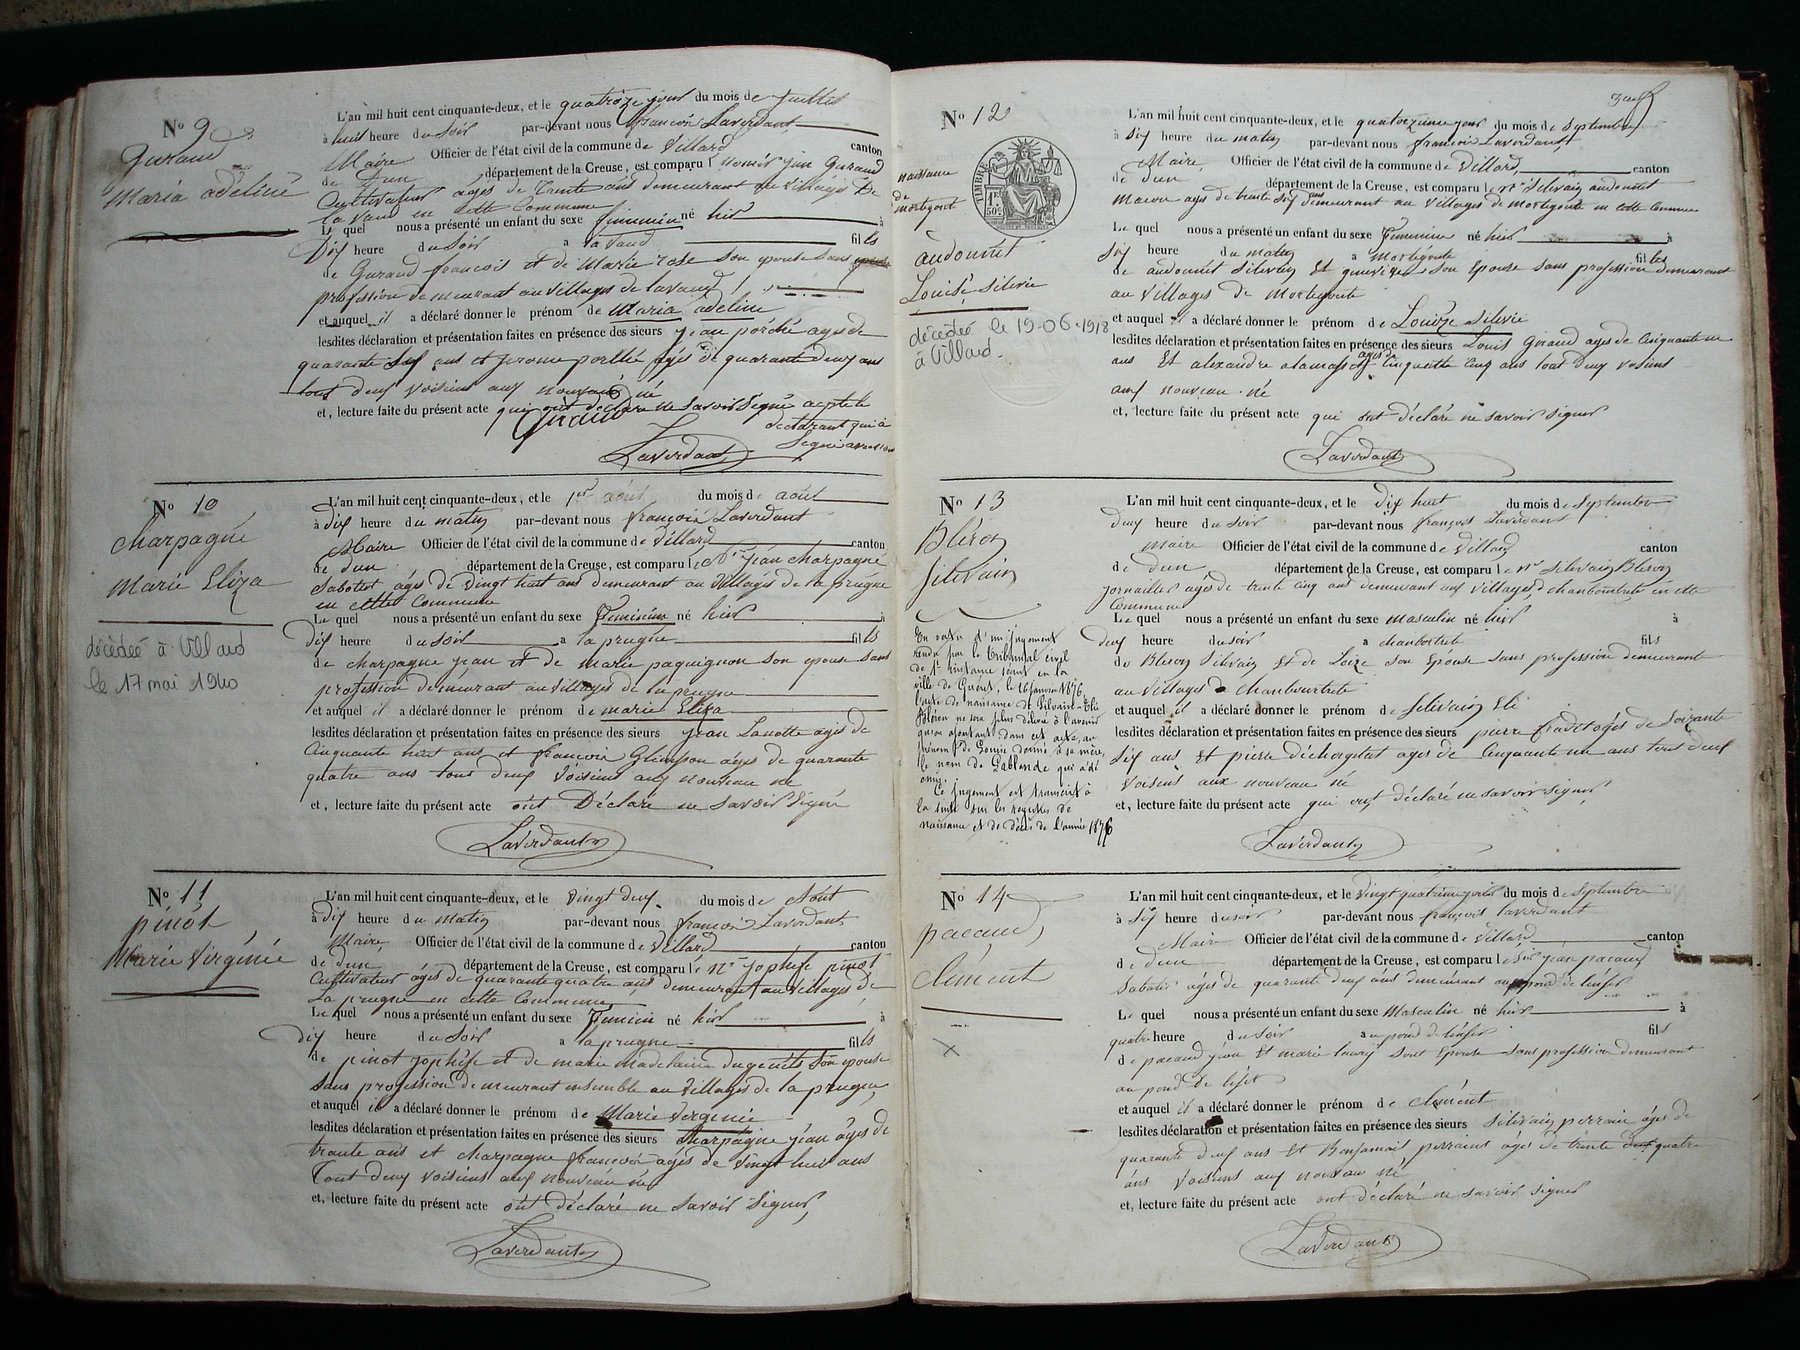 N° 9
Guraud
Maria adeline
L'an mil huit cent cinquante-deux, et le quatorze jour du mois de Juillet
à huit heure du Soir par-devant nous françois Laverdant
Maire Officier de l'état civil de la commune de Villard canton
de Dun département de la Creuse, est comparu jean Guraud
Cultivateur agés de Trente ans demeurant au villages De
la vaud en cette Commune
Le quel nous a présenté un enfant du sexe feminin né hier à
Dix heure du Soir a la vaud fils
de Guraud francois et de Marie rose son epouse sans
profession demeurant au villages de lavaud
et auquel il a déclaré donner le prénom de Maria adeline
lesdites déclaration et présentation faites en présence des sieurs jean porché ages de
quarante Six ans et jerome porché agés de quarante deux ans
tous deux voisins aux nouveau né
et, lecture faite du présent acte qui ont déclaré ne savoir Signé acepté le
declarant qui a
Signé avec nous
Guraud
Laverdant
N° 10
Charpagne
Marie Eliza
décédée à Villard
le 17 mai 1940
L'an mil huit cent cinquante-deux, et le 1er août du mois de août
à dix heure du matin par-devant nous françois Laverdant
Maire Officier de l'état civil de la commune de Villard canton
de Dun département de la Creuse, est comparu le Sr jean charpagne
Sabotier agés de vingt huit ans demeurant au villages de la prugne
en cette Commune
Le quel nous a présenté un enfant du sexe Feminin né hier à
dix heure du Soir a la prugne fils
de charpagne jean et de marie paquignon son epouse sans
profession demeurant au villages de la prugne
et auquel il a déclaré donner le prénom de marie Eliza
lesdites déclaration et présentation faites en présence des sieurs jean Lanotte agés de
Cinquante huit ans et françois Glimson agés de quarante
quatre ans tous deux voisins aux nouveau né
et, lecture faite du présent acte ont Déclaré ne savoir Signé
Laverdant
N° 11
pinot
Marie Virginie
L'an mil huit cent cinquante-deux, et le vingt deux du mois de Août
à dix heure du matin par-devant nous françois Laverdant
Maire Officier de l'état civil de la commune de Villard canton
de Dun département de la Creuse, est comparu le Mr jophise pinot
Cultivateur agés de quarante quatre ans demeurant au villages de
La prugne en cette Commune
Le quel nous a présenté un enfant du sexe Feminin né hier à
dix heure du Soir a la prugne fils
de pinot jophise et de marie madelaine dugenêts son epouse
Sans profession demeurant ensemble au villages de la prugne,
et auquel il a déclaré donner le prénom de Marie Vergenie
lesdites déclaration et présentation faites en présence des sieurs Charpagne jean âgés de
trante ans et charpagne françois agés de vingt huit ans
Tout deux voisins aux nouveau né
et, lecture faite du présent acte ont déclaré ne savoir Signer,
Laverdant
N° 12
naissance
de
mortegoute
TIMBRE
1F.
50C.
audounet
Louise silvie
décédée le 19-06-1918
à Villard.
L'an mil huit cent cinquante-deux, et le quatorzieme jour du mois de Septembre
à Six heure du matin par-devant nous françois Laverdant
Maire Officier de l'état civil de la commune de Villard, canton
de dun département de la Creuse, est comparu le Mr Silvain audounet
macon ages de trente six ans demeurant au villages de mortegoute en cette Commune
Le quel nous a présenté un enfant du sexe Feminin né hier à
Six heure du matin a mortegoute filles
de audounet Silvain Et geneviève son Epouse sans profession demeurant
au villages de mortegoute
et auquel il a déclaré donner le prénom de Louize silvie
lesdites déclaration et présentation faites en présence des sieurs Louis Giraud ages de Cinquante un
ans Et alexandre agés de cinquante cinq ans tout deux voisins
aux nouveau né
et, lecture faite du présent acte qui ont déclaré ne savoir signer
Laverdant
N° 13
Bleron
Silvain
En vertu d'un jugement
rendu par le tribunal civil
de 1re instance séant en la
ville de Guéret, le 16 janvier 1876,
l'acte de naissance de Silvain-Eli
Bleron ne sera plus délivré à l'avenir
qu'en ajoutant dans cet acte, au
prénom de Louise donné à sa mère,
le nom de Lablande qui a été
omis.
Ce jugement est transcrit à
la suite sur les registres de
naissance et de décès de l'année 1876
L'an mil huit cent cinquante-deux, et le dix huit du mois de Septembre
deux heure du Soir par-devant nous françois Laverdant
Maire Officier de l'état civil de la commune de Villard canton
de Dun département de la Creuse, est comparu le Mr Silvain Bleron
jornallier ages de trente cinq ans demeurant aux villages chanboutrete en cette
Commune
Le quel nous a présenté un enfant du sexe masculin né hier à
deux heure du soir a chanboutrete fils
de Bleron Silvain Et de Loize son Epouse sans profession demeurant
au villages de chanboutrete
et auquel il a déclaré donner le prénom de Silvain Eli
lesdites déclaration et présentation faites en présence des sieurs pierre fradet agés de Soizante
Six ans Et pierre ages de Cinquante un ans tous deux
voisins aux nouveau né
et, lecture faite du présent acte qui ont déclaré ne savoir signer
Laverdant
N° 14
pacaud
Clément
L'an mil huit cent cinquante-deux, et le vingt quatrieme jour du mois de Septembre
à Six heure du soir par-devant nous françois laverdant
Maire Officier de l'état civil de la commune de Villard canton
de dun département de la Creuse, est comparu le Sieur jean pacaud
Sabotié agés de quarante deux ans demeurant au pond de l'enfer
Le quel nous a présenté un enfant du sexe Masculin né hier à
quatre heure du Soir a pond de l'enfer fils
de pacaud jean Et marie laury sont Epouse sans profession demeurant
au pond de
et auquel il a déclaré donner le prénom de Clément
lesdites déclaration et présentation faites en présence des sieurs Silvain perrain agés de
quarante deux ans Et Benjamin perrain agés de trente quatre
ans voisins aux nouveau né
et, lecture faite du présent acte ont déclaré ne savoir signer
Laverdant